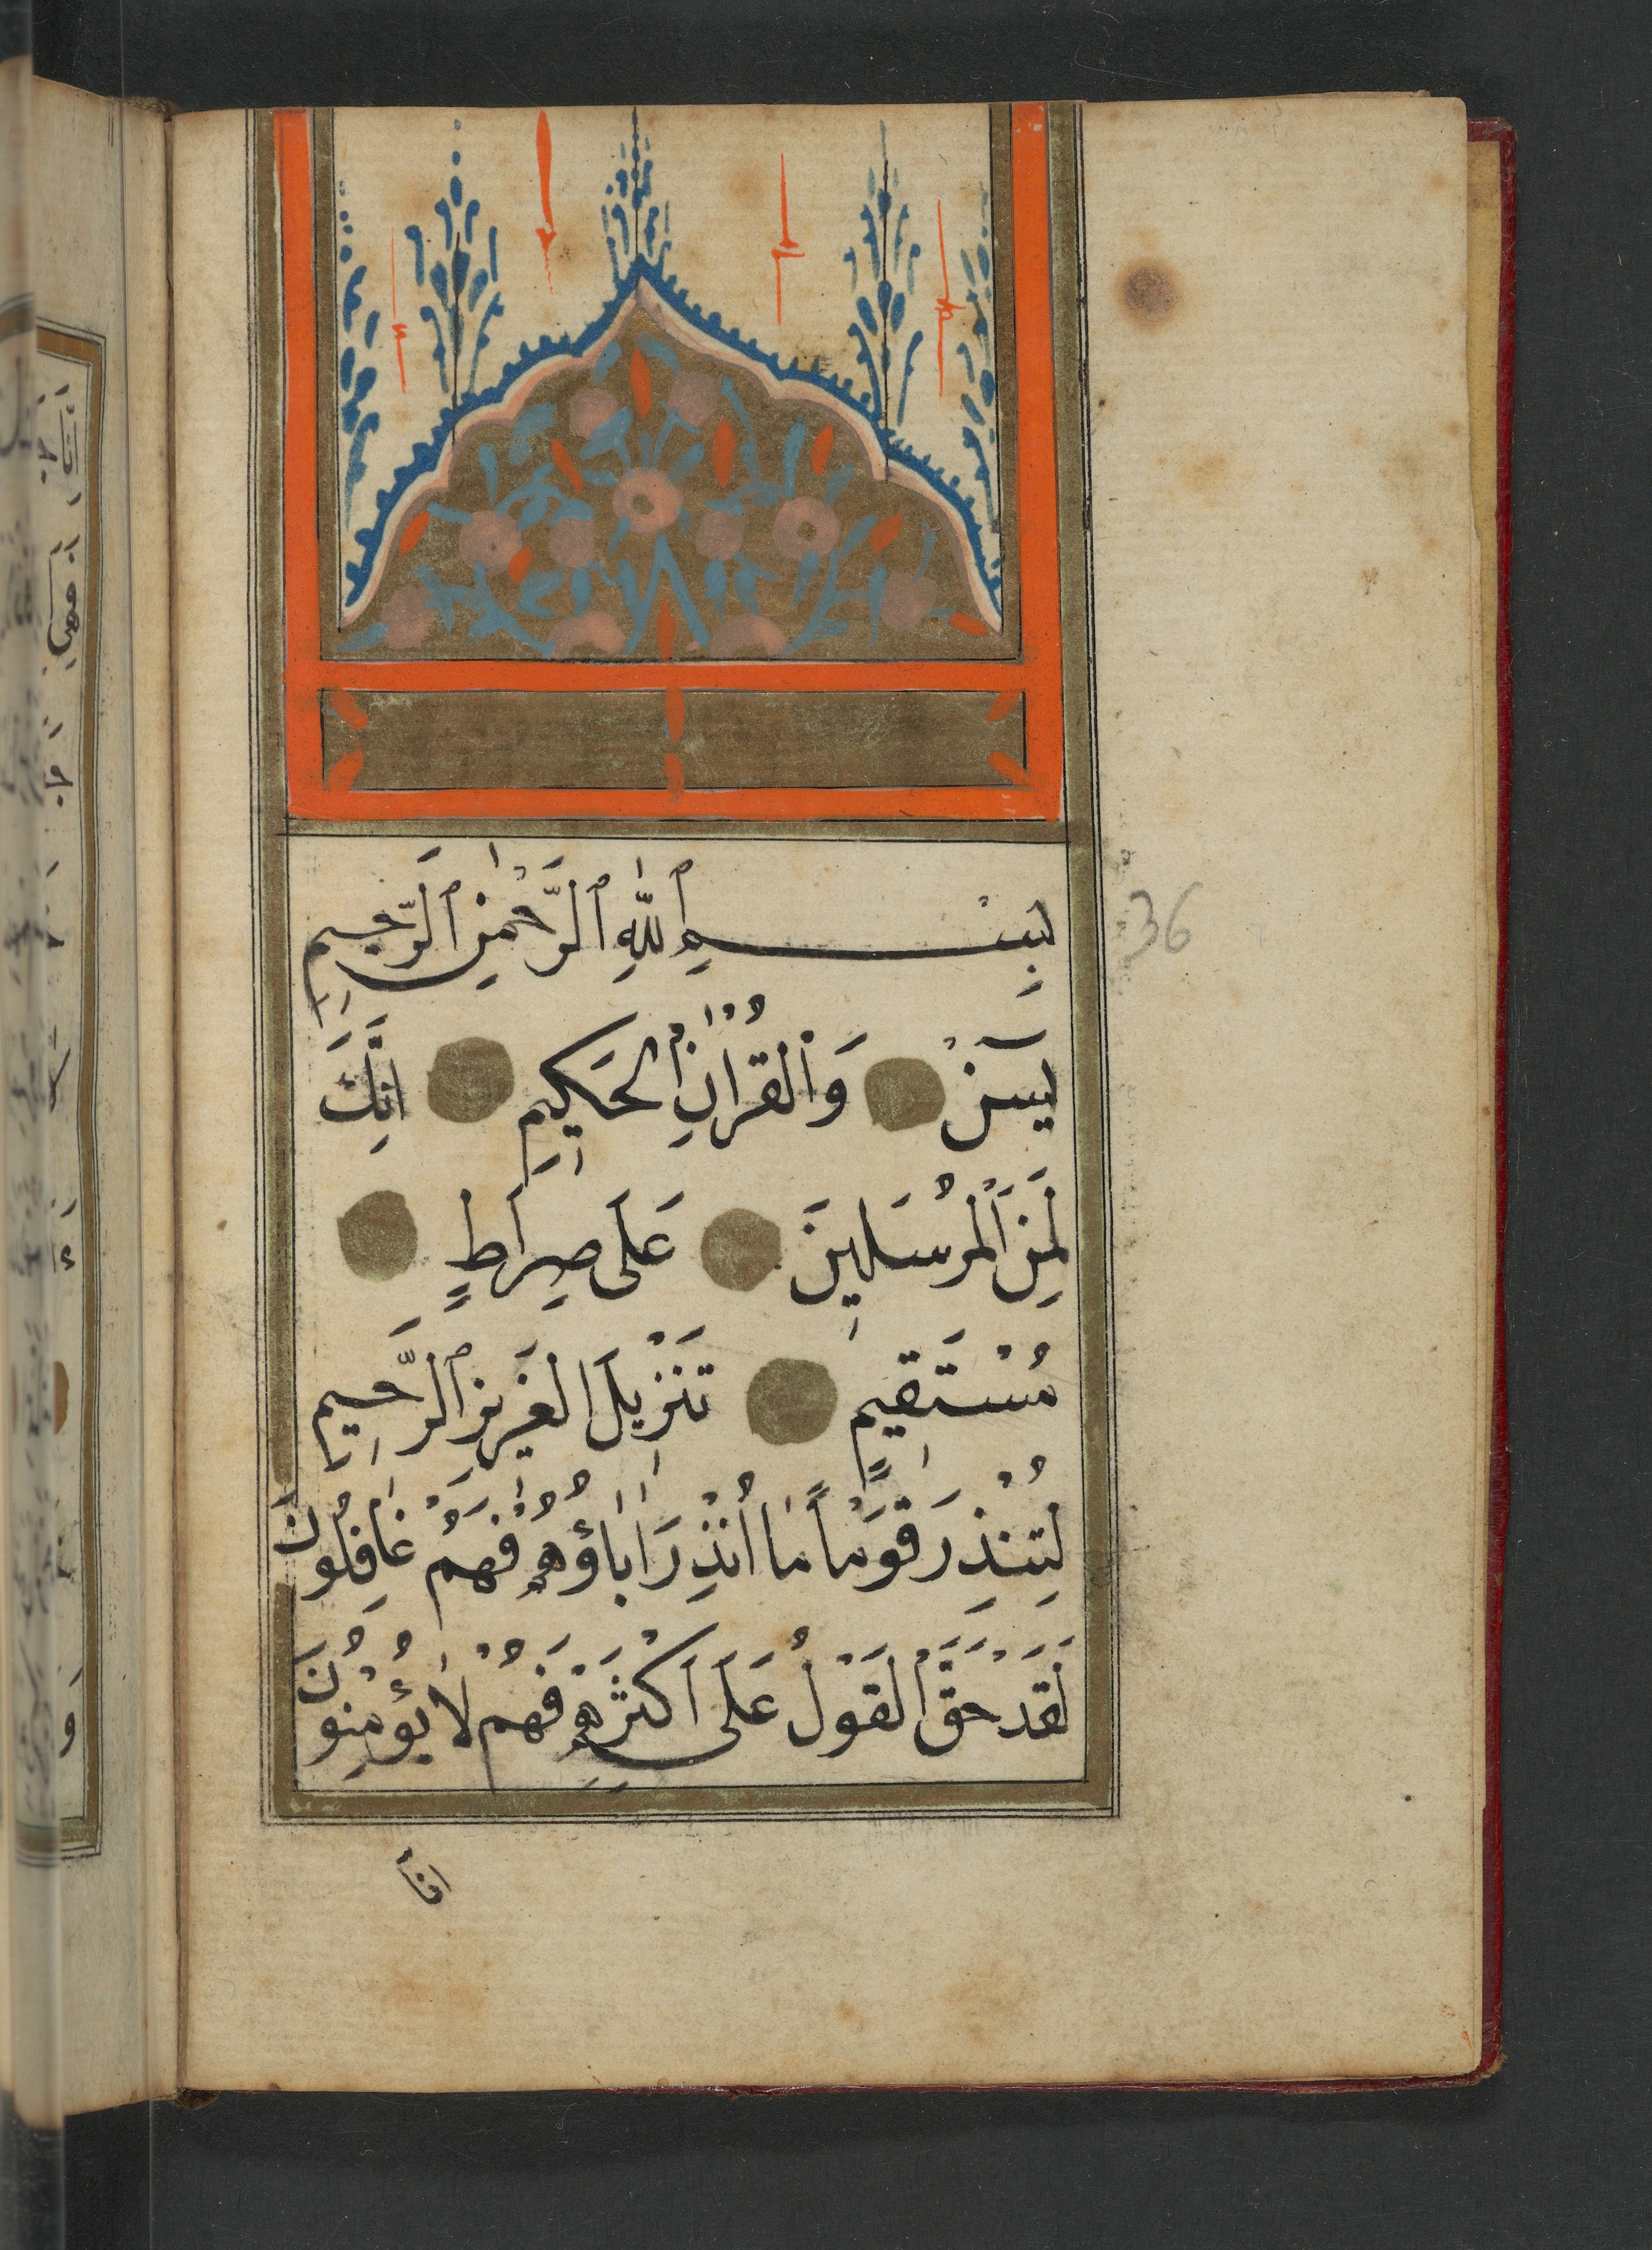 بِسْمِ ٱللّٰهِ ٱلرَّحْمٰنِ ٱلرَّحِيمِ
36
يٓسٓنْ وَالْقُرْاٰنِ الْحَكِيمِ اِنَّكَ
لَمِنَ الْمُرْسَلِينَ عَلَى صِرَاطٍ
مُسْتَقِيمٍ تَنْزِيلَ الْعَزِيزِ ٱلرَّحِيمِ
لِتُنْذِرَ قَوْمًا مَا اُنْذِرَ اٰبَاؤُهُمْ فَهُمْ غَافِلُونَ
لَقَدْ حَقَّ الْقَوْلُ عَلَى اَكْثَرِهِمْ فَهُمْ لَا يُؤْمِنُونَ
انَّا